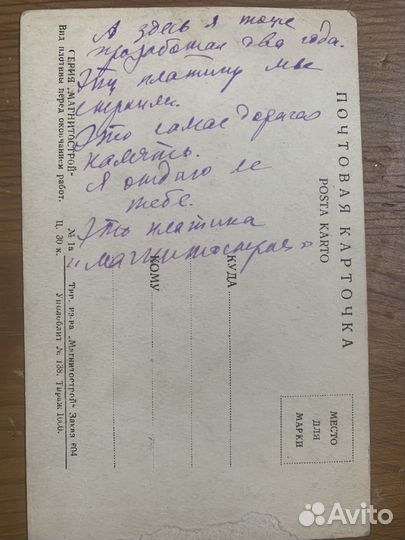 А здесь я тоже
проработал два года.
Эту платину мы
строили.
Это самая дорогая
память.
Я отдаю ее
тебе.
Это платина
"Магнитострая"
ПОЧТОВАЯ КАРТОЧКА
POSTA KARTO
КУДА
КОМУ
МЕСТО
ДЛЯ
МАРКИ
СЕРИЯ „МАГНИТОСТРОЙ"
№ 1а
Тип. из-ва „Магнитострой" Заказ 604
Вид плотины перед окончанием работ.
Ц. 30 к.
Уполоблит № 138. Тираж 1000.
Avito